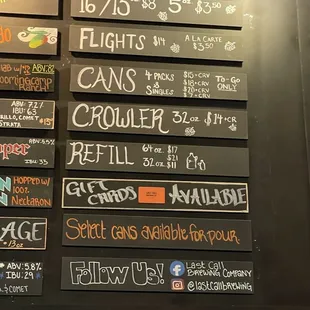 16/13oz $8 5oz $3.50
FLIGHTS $14 A LA CARTE
$3.50
CANS 4 PACKS & SINGLES
$15+CRV
$18+CRV
$20+CRV
$7+CRV
TO-GO ONLY
CROWLER 32oz $14+CR
REFILL 64oz $17
32oz $11
GIFT CARDS AVAILABLE
Select cans available for pour.
Follow Us! LAST CALL BREWING COMPANY
@lastcallbrewing
ABV: 8%
ABV: 7.2%
IBU: 63
COMET
STRATA
ABV: 5.5%
per
IBU: 35
HOPPED w/
100%
Nectaron
AGE
13oz
ABV: 5.8%
IBU: 29
& COMET